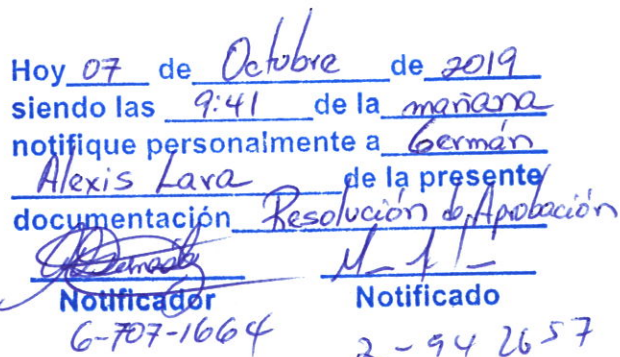 Hoy 07 de Octubre de 2019
siendo las 9:41 de la mañana
notifique personalmente a Germán
Alexis Lara de la presente
documentación Resolución de Aprobación
Notificador Notificado
6-707-1664 2-94 2657